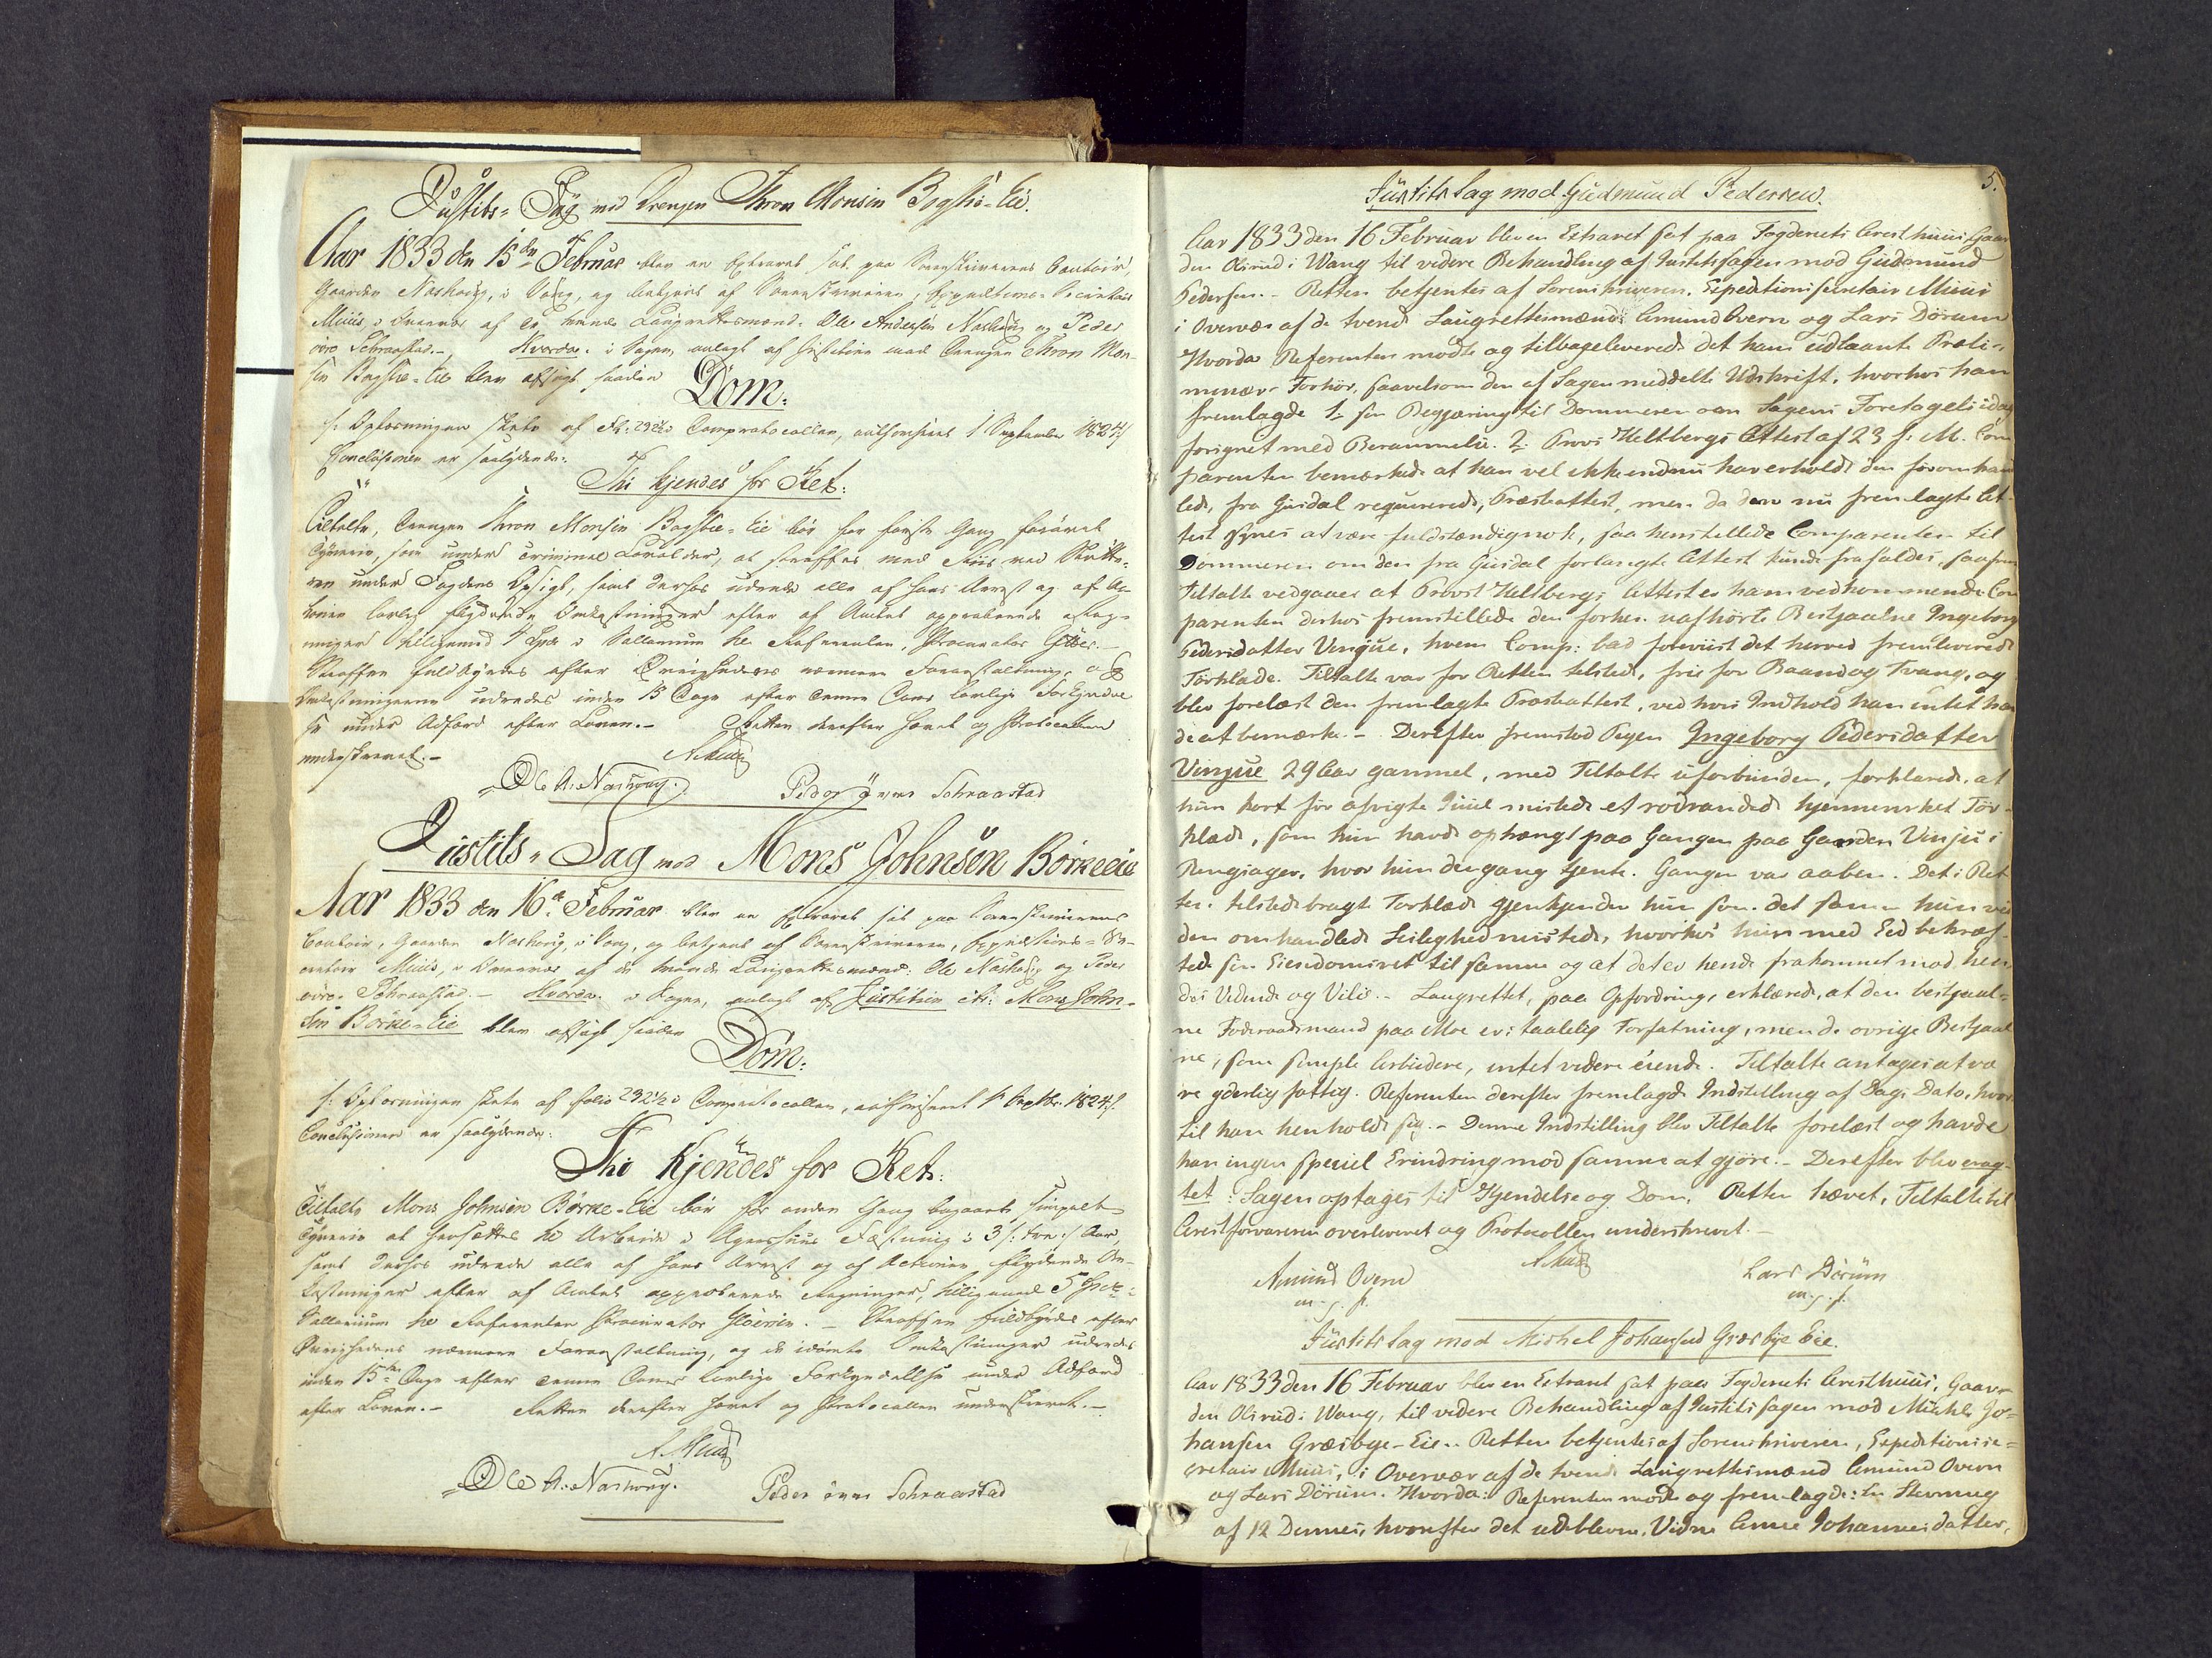 Justits-Sag mod Drengen Thron Monsen Bagstie-Eie.
Aar 1833 den 15de Februar blev en Extraret sat paa Sorenskriverens Contoir,
Gaarden Nashoug, i Vang, og betjent af Sorenskriveren, Expeditions-Secretair
Muus, i Overvær af de tvende Laugrettesmænd: Ole Andersen Nashoug og Peder
övre Schraastad.- Hvorda: i Sagen, anlagt af Justitien mod Drengen Thron Mon-
sen Bagstie-Eie blev afsagt saadan
Dom:
/: Oplæsningen skete af Fol: 292 i Domprotocollen, authoriseret 1 September 1824/
Conclusionen er saalydende:
Thi kjendes for Ret:
Tiltalte, Drengen Thron Monsen Bagstie-Eie bør for første Gang begaaet
Tyverie, som under criminel Lavalder, at straffes med Riis ved Skafte-
ren under Fogdens Opsigt, samt derhos udrede alle af hans Arrest og af Ac-
tionen lovlig flydende Omkostninger efter af Amtet approberede Reg-
ninger heligemed 4 Spd i Sallarium til Referenten, Procurator
Straffen fuldbyrdes efter Øvrighedens nærmere Foranstaltning, og
Omkostningerne udredes inden 15 Dage efter denne Doms lovlige Forkyndel-
se under Adfærd efter Loven.- Retten derefter hævet og Protocollen
underskrevet.-
A Muus
Ole A. Nashoug. Peder övre Schraastad
Justits-Sag mod Mons Johnsen Börke eie
Aar 1833 den 16de Februar blev en Extraret sat paa Sorenskriverens
Contoir, Gaarden Nashoug, i Vang, og betjent af Sorenskriveren, Expeditions-Se-
cretair Muus, i Overvær af de tvende Laugrettesmænd: Ole Nashoug og Peder
övre Schraastad.- Hvorda: i Sagen, anlagt af Justitien ctr: Mons John-
sen Börke-Eie blev afsagt saadan
Dom:
/: Oplæsningen skete af folio 292½ i Domprotocollen, authoriseret 1 Septbr. 1824/.
Conclusionen er saalydende:
Thi kjendes for Ret:
Tiltalte Mons Johnsen Börke-Eie bör for anden Gang begaaet simpelt
Tyverie at hensættes til Arbeide i Agershuus Fæstning i 3 /: tre :/ Aar,
samt derhos udrede alle af hans Arrest og af Actionen flydende Om-
kostninger efter af Amtet approberede Regninger, heligemed 5 Spd:
Sallarium til Referenten Procurator Gløersen.- Straffen fuldbyrdes efter
Øvrighedens nærmere Foranstaltning, og de idömte Omkostninger udredes
inden 15 Dage efter denne Doms lovlige Forkyndellse under Adfærd
efter Loven.- Retten derefter hævet og Protocollen underskrevet.-
A. Muus
Ole A. Nashoug. Peder övre Schraastad
5.
Justits Sag mod Gudmund Pedersen.
Aar 1833 den 16 Februar blev en Extraret sat paa Fogderiets Aresthuus, Gaar
den Olsrud i Wang til videre Behandling af Justitssagen mod Gudmund
Pedersen.- Retten betjentes af Sorenskriveren, Expeditionssecretair Muus
i Overvær af de tvende Laugrettesmænd: Amund Overn og Lars Dörum
Hvorda Referenten mødte og tilbageleverede det ham udlaante Præli-
minære Forhör, saavelsom den af Sagen meddelte Udskrift, hvorhos han
fremlagde 1: sin Begjæring til Dommeren om Sagens Foretagelse idag
forsynet med Berammelse. 2: Provst Heltbergs Attest af 23 f: M. Com
parenten bemærkede at han vel ikke endnu har erholdt den foromhand
lede, fra Gusdal requirerede, Præsteattest, men da den nu fremlagte At-
test synes at være fuldstændig nok, saa henstillede Comparenten til
Dommeren om den fra Gusdal forlangte Attest kunde frafaldes, saafrem
Tiltalte vedgaaer at Provst Heltbergs Attest er ham vedkommende Com
parenten derhos fremstillede den forhen uafhörte Bestjaalne Ingeborg
Pedersdatter Vinjue, hvem Comp: bad foreviist det herved fremleverede
Törklæde. Tiltalte var for Retten tilstede, frie for Baand og Tvang, og
blev forelæst den fremlagte Præsteattest, ved hvis Indhold han intet hav
de at bemærke.- Derefter fremstod Pigen Ingeborg Pedersdatter
Vinjue 29 Aar gammel, med Tiltalte uforbunden, forklarede, at
hun kort för afvigte Juul mistede et rödrandede hjemmevirket Tör-
klæde, som hun havde ophængt paa Gangen paa Gaarden Vinjue i
Ringsager, hvor hun dengang tjente. Gangen var aaben. Det i Ret
ten tilstedebragte Torklæde gjenkjender hun som det samme hun ved
den omhandlede Leilighed mistede, hvorhos hun med Eed bekræf-
tede sin Eiendomsret til samme og at det er hende frakommet mod hen
des Vidende og Villie.- Laugrettet, paa Opfordring, erklærede, at den bestjaal-
ne Foderaadsmand paa Moe er i taalelig Forfatning, men de ovrige Bestjaal
ne, som simple Arbeidere, intet videre eiende. Tiltalte antages at væ
re yderlig fattig. Referenten derefter fremlagde Indstilling af Dags Dato, hvor
til han henholdt sig.- Denne Indstilling blev Tiltalte forelæst og havde
han ingen speciel Erindring mod samme at gjöre.- Derefter blev erag-
tet: Sagen optages til Kjendelse og Dom. Retten hævet, Tiltalte til
Arestforvareren overleveret og Protocollen underskrevet.-
A Muus
Amund Overn Lars Dörum
m. p. p. m. p. p.
Justits Sag mod Mickel Johansen Græsbye Eie.
Aar 1833 den 16 Februar blev en Extraret sat paa Fogderiets Aresthuus, Gaar-
den Olsrud i Wang, til videre Behandling af Justitssagen mod Mickel Jo-
hansen Græsbye-Eie.- Retten betjentes af Sorenskriveren, Expeditionsse-
cretair Muus, i Overvær af de tvende Laugrettesmænd Amund Overn
og Lars Dörum. Hvorda: Referenten mødte og fremlagde: En Stevning
af 12 Dennes, hvorefter det udeblevne Vidne Anne Johannesdatter,